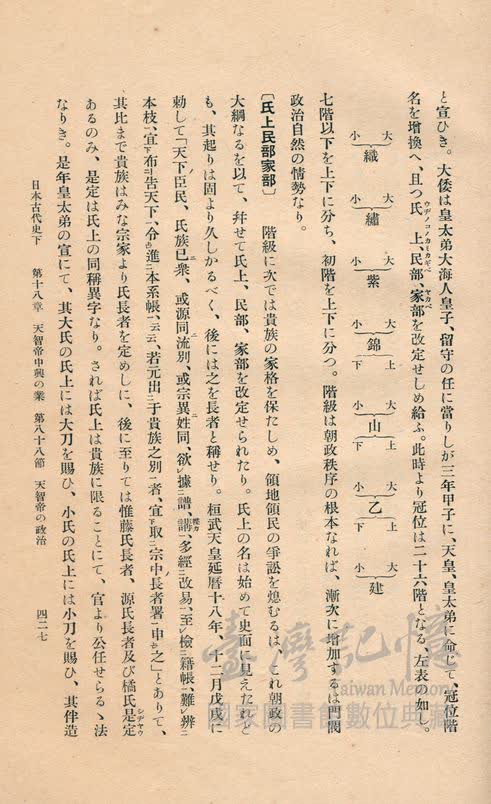 と宣ひき。大倭は皇太弟大海人皇子、留守の任に當りしが三年甲子に、天皇、皇太弟に命じて、冠位階
名を増換へ、且つ氏上、民部、家部を改定せしめ給ふ。此時より冠位は二十六階となる、左表の如し。
ウヂノコノカミカキベ ヤカベ
大小 織 大小 繡 大小 紫 大小 錦 上下 大小 山 上下 大小 乙 上下 大小 建
七階以下を上下に分ち、初階を上下に分つ。階級は朝政秩序の根本なれば、漸次に增加するは門閥
政治自然の情勢なり。
〔氏上民部家部〕 階級に次では貴族の家格を保たしめ、領地領民の爭訟を熄むるは、これ朝政の
大綱なるを以て、幷せて氏上、民部、家部を改定せられたり。氏上の名は始めて史面に見えたれど
も、其起りは固より久しかるべく、後には之を長者と稱せり。桓武天皇延曆十八年、十二月戊戌に
勅して「天下臣民、氏族已衆、或源同流別、或宗異姓同、欲レ據二譜、講一、多經二改易一、至レ檢二籍帳一、難レ辨二
本枝一、宜下布二吿天下一、令上レ進二本系帳一、云云、若元出二于貴族之別一者、宜下取二宗中長者署一申上レ之」とありて、
其比まで貴族はみな宗家より氏長者を定めしに、後に至りては惟藤氏長者、源氏長者及び橘氏是定
シヂヤウ
あるのみ、是定は氏上の同稱異字なり。されば氏上は貴族に限ることにて、官より公任せらるゝ法
なりき。是年皇太弟の宣にて、其大氏の氏上には大刀を賜ひ、小氏の氏上には小刀を賜ひ、其伴造
日本古代史下 第十八章 天智帝中興の業 第八十八節 天智帝の政治 四二七
臺灣記憶
Taiwan Memory
國家圖書館數位典藏